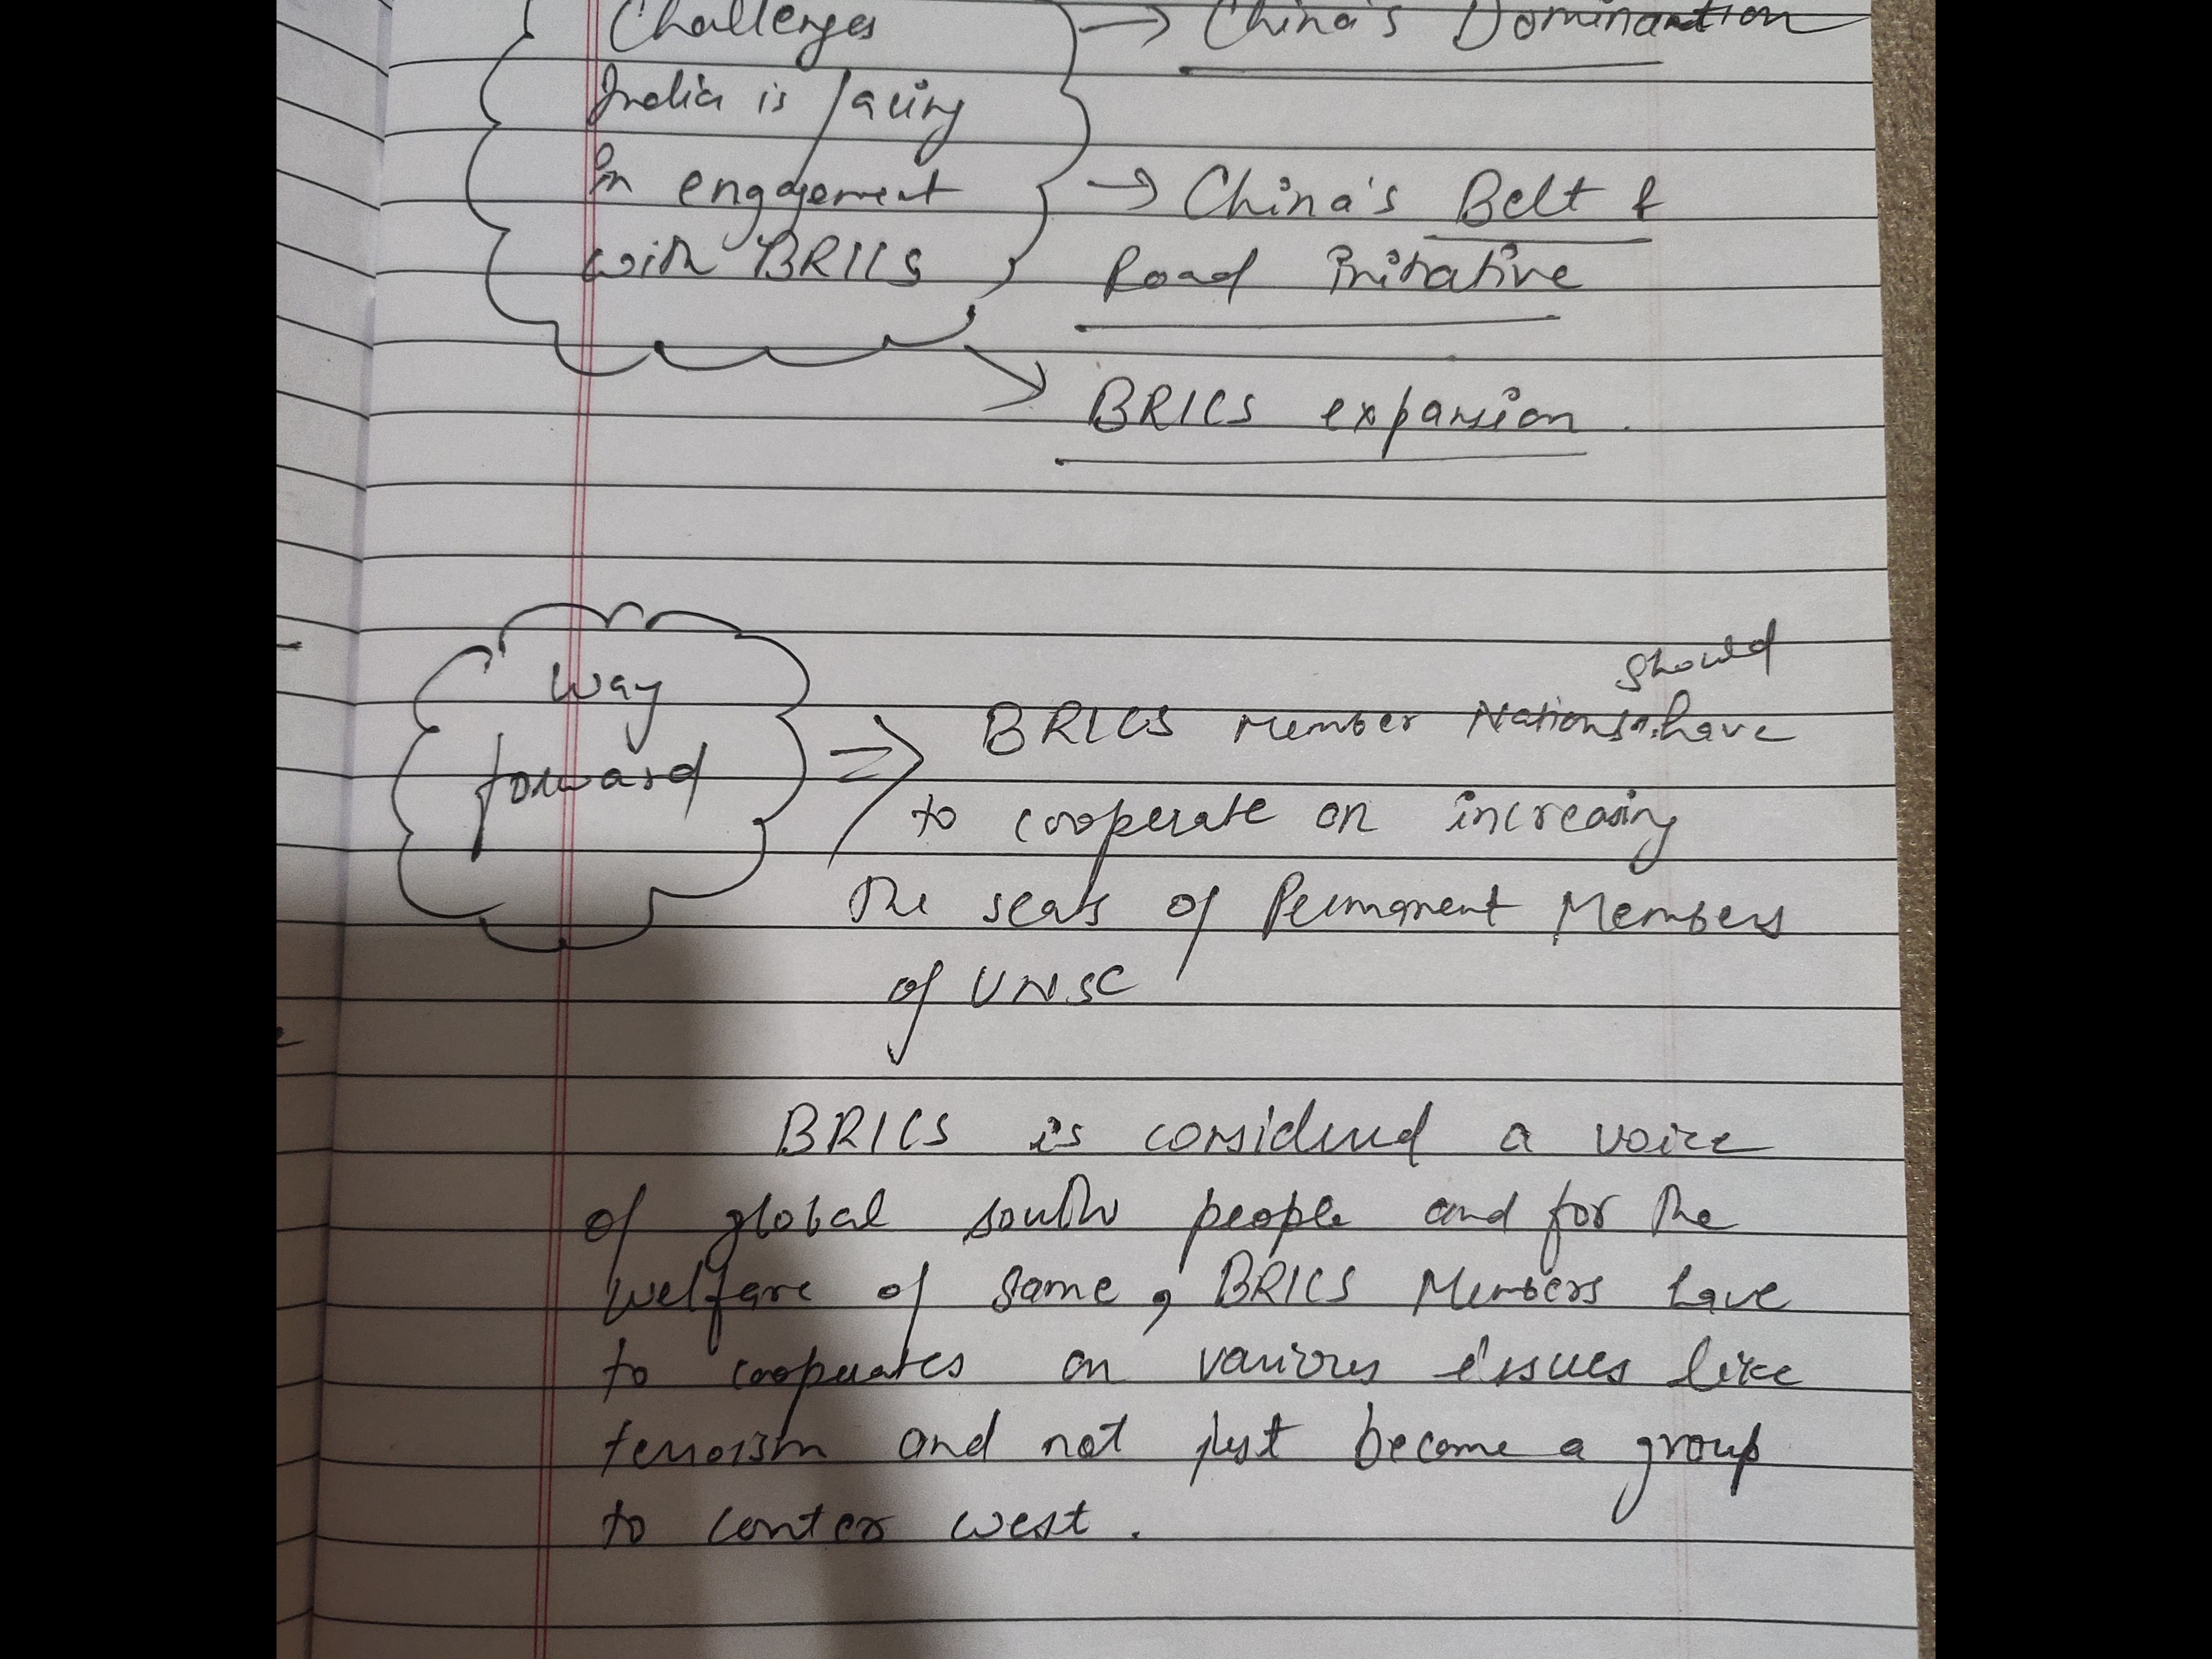 Challenges → China's Domination
India is facing
in engagement → China's Belt &
with BRICS Road initiative
→ BRICS expansion.
should
Way BRICS Member Nations have
forward => to cooperate on increasing
the seats of Permanent Members
of UNSC
BRICS is considered a voice
of global south people and for the
welfare of same, BRICS Members have
to cooperates on various issues like
terroism and not just become a group
to conter west.